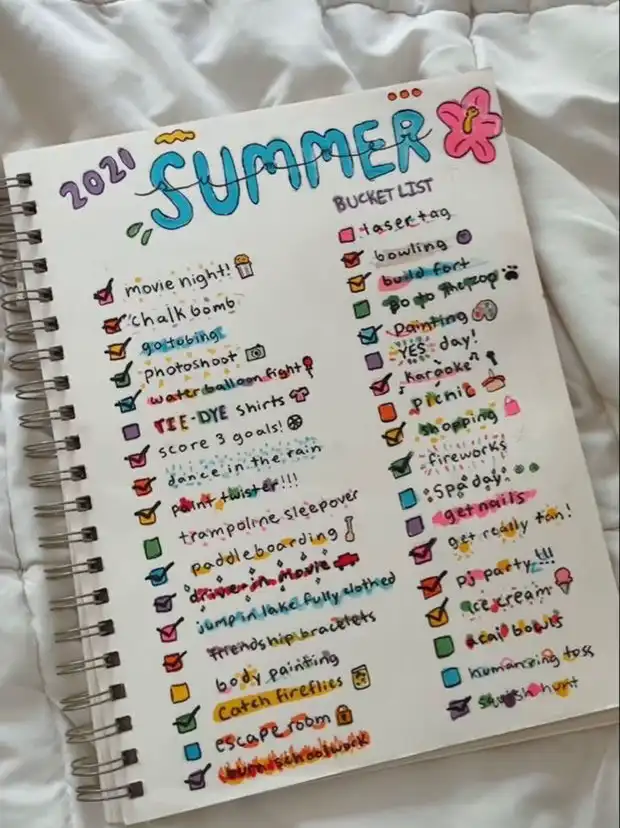 2021 SUMMER
BUCKET LIST
movie night!
chalk bomb
go tubing!
photoshoot
water balloon fight
TIE-DYE shirts
score 3 goals!
dance in the rain
paint twister!!!
trampoline sleepover
paddleboarding
drive in movie
jump in lake fully clothed
friendship bracelets
body painting
Catch fireflies
escape room
burn schoolwork
laser tag
bowling
build fort
Go to the zoo
Painting
YES day!
Karaoke
picnic
shopping
fireworks
Spa day
get nails
get really tan!
pj party!!!
ice cream
acai bowls
human ring toss